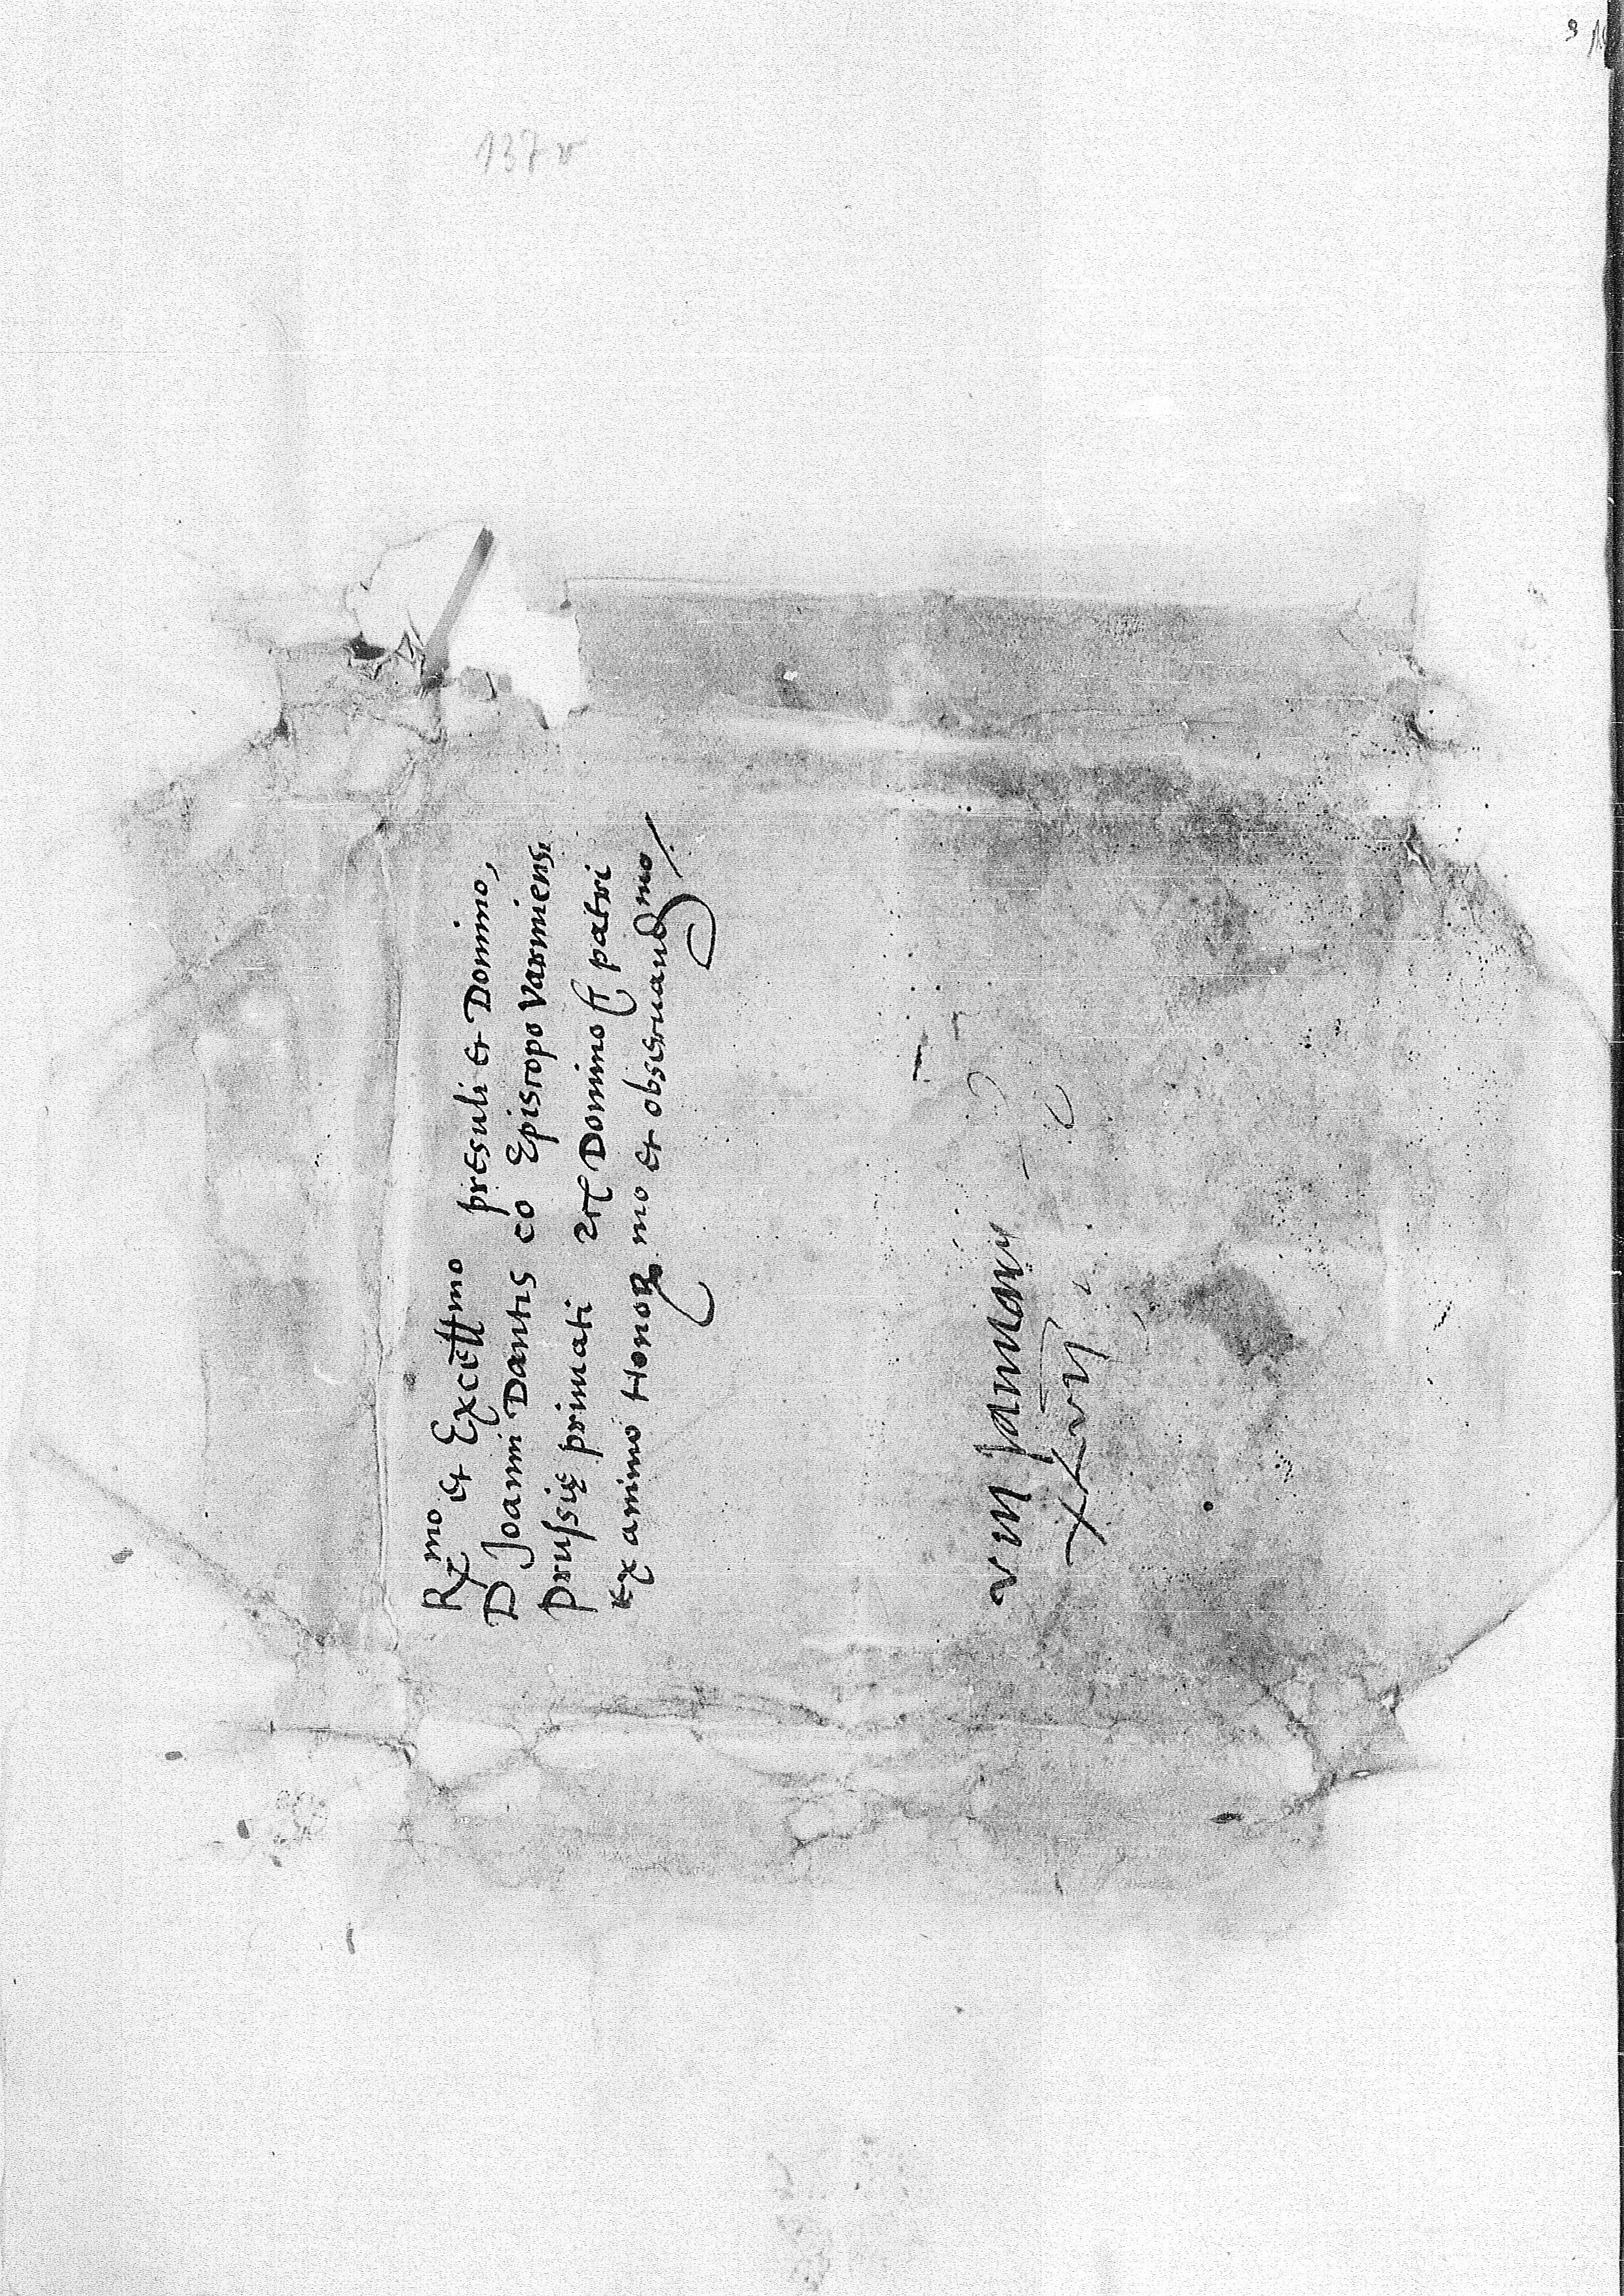 137 v
Rmo et Excellmo presuli et Domino,
D Joanni Dantis co Episcopo Varmiensi
Prussię primati etc Domino et patri
Ex animo Honor mo et obseruandmo
VIII Januarii